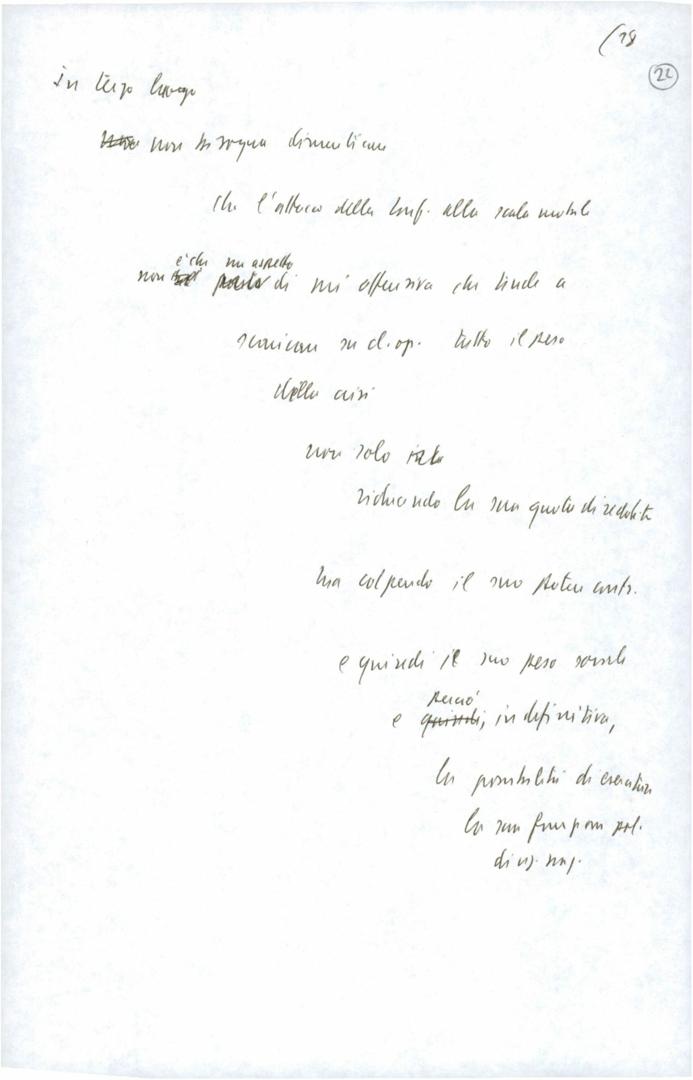 (28
22
in terzo luogo
non bisogna dimenticare
che l'attacco della Conf. alla scala mobile
è che un aspetto
non di un'offensiva che tende a
scaricare su cl. op. tutto il peso
della crisi
non solo
riducendo la sua quota di reddito
ma colpendo il suo potere contr.
e quindi il suo peso sociale
perciò
e quindi, in definitiva,
la possibilità di esercitare
la sua funzione pol.
di naz.